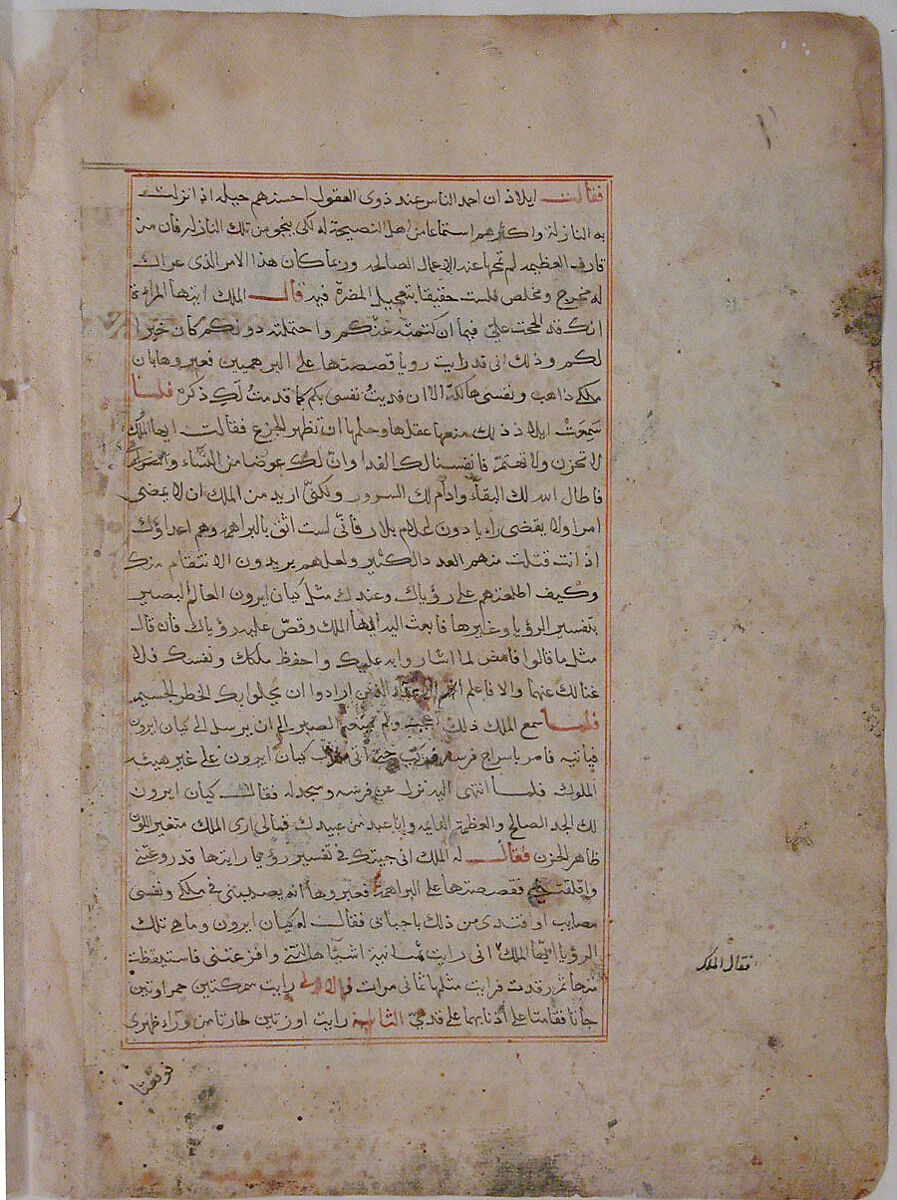 فقالت ايلاذ ان احمد الناس عند ذوي العقول احسنهم حيلة اذا نزلت
به النازلة واكثرهم استماعا من اهل النصيحة له لكي ينجو من تلك النازلة فان من
قارف العظيمة لم تمحها عنه الاعمال الصالحة وربما كان هذا الامر الذي عراك
له مخرج ومخلص فلست حقيقا بتعجيل المضرة فيه قال الملك ايتها المراءة
انك قد الححت علي فيما ان كتمته عنكم واحتملته دونكم كان خيرا
لكم وذلك اني قد رايت رويا قصصتها على البرهميين فعبروها بان
ملكي ذاهب ونفسي هالكة الا ان فديت نفسي بكم كما قدمت لك ذكره فلما
سمعت ايلاذ ذلك منعها عقلها وحلمها ان تظهر الجزع فقالت ايها الملك
لا تحزن ولا تهتم فانفسنا لك الفدا وان لك عوضا من النساء
فاطال الله لك البقاء وادام لك السرور ولكني اريد من الملك ان لا يمضي
امرا ولا يقضي راءيا دون بلار فاني لست اثق بالبراهمة وهم اعداؤك
اذ انت قتلت منهم العدد الكثير ولعلهم يريدون الانتقام منك
وكيف اطلعتهم على رؤياك وعندك مثل كيان ايرون العالم البصير
بتفسير الرؤيا وغيرها فابعث اليه ايها الملك وقص عليه رؤياك فان قال
مثل ما قالوا فامض لما اشار وابه عليك واحفظ ملكك ونفسك فلا
غنا لك عنهما والا فاعلم انهم الاعداء الذين ارادوا ان يحلوا بك الخطر الجسيم
فلما سمع الملك ذلك ولم الصبر الى ان يرسل الى كيان ايرون
فياتيه فامر باسراج فرسه فركب حتى اتى كيان ايرون على غير هيئه
الملوك فلما انتهى اليه نزل عن فرسه وسجد له فقال كيان ايرون
لك الجد الصالح والعظمة الدايمة وانا عبد من عبيدك فمالي ارى الملك متغير اللون
ظاهر الحزن فقال له الملك اني جيتك في تفسير رؤيا رايتها قد روعتني
واقلقتني فقصصتها على البراهمة فخبروها انه يصيبني في ملكي ونفسي
مصايب او افتدي من ذلك باحبائي فقال له كيان ايرون وما هي تلك
الرؤيا ايها الملك اني رايت ثمانية اشيا هالتني وافزعتني فاستيقظت
ثم رقدت فرايت مثلها ثماني مرات فالاولى رايت سمكتين حمراوتين
جاتا فقامتا على اذنابهما على قدمي الثانية رايت اوزتين طارتا من وراء ظهري
فقال الملك
فوقعتا